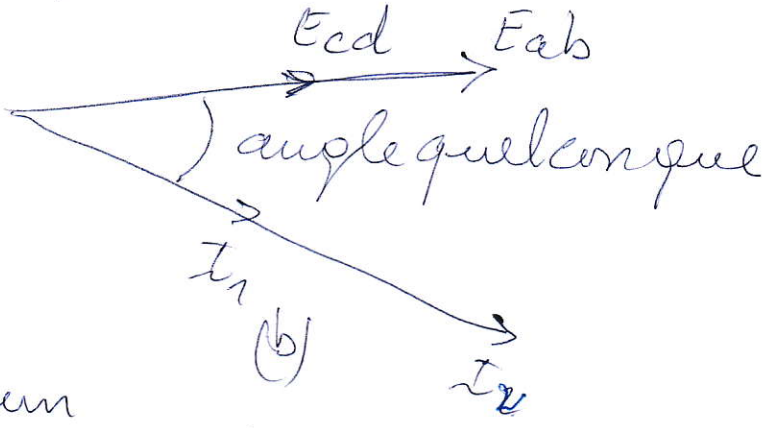 Ecd Eab
angle quelconque
I₁
(b)
I₂